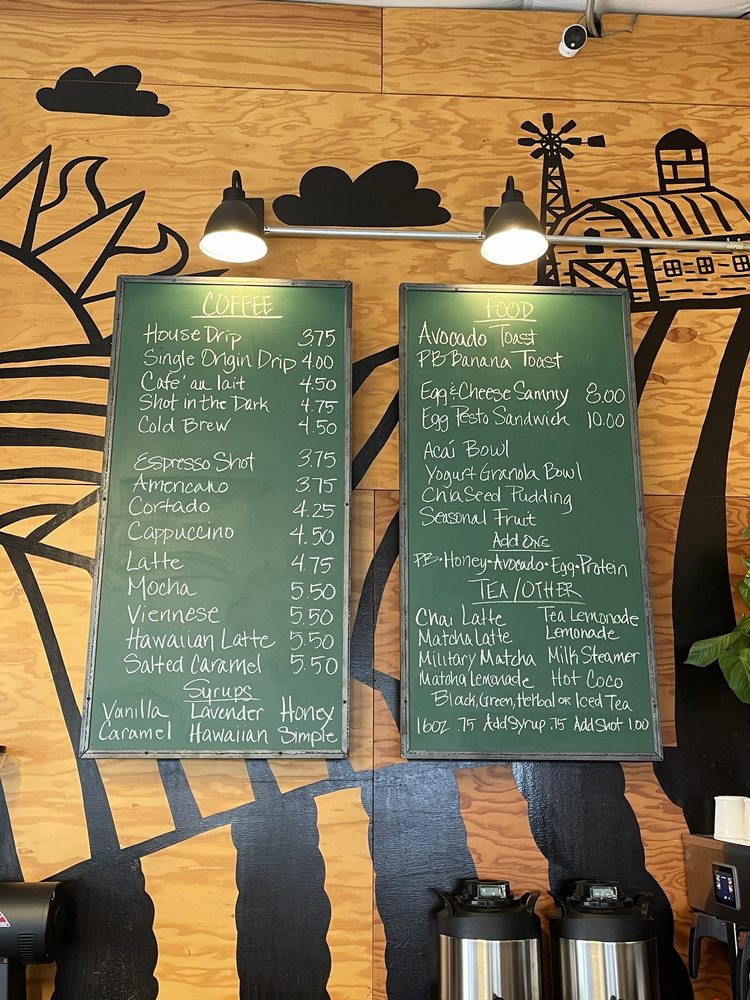 COFFEE
House Drip 3.75
Single Origin Drip 4.00
Cafe' au lait 4.50
Shot in the Dark 4.75
Cold Brew 4.50
Espresso Shot 3.75
Americano 3.75
Cortado 4.25
Cappuccino 4.50
Latte 4.75
Mocha 5.50
Viennese 5.50
Hawaiian Latte 5.50
Salted Caramel 5.50
Syrups
Vanilla Lavender Honey
Caramel Hawaiian Simple
FOOD
Avocado Toast
PB Banana Toast
Egg & Cheese Sammy 8.00
Egg Pesto Sandwich 10.00
Acaí Bowl
Yogurt Granola Bowl
Chia Seed Pudding
Seasonal Fruit
Add Ons
PB • Honey • Avocado • Egg • Protein
TEA / OTHER
Chai Latte Tea Lemonade
Matcha Latte Lemonade
Military Matcha Milk Steamer
Matcha Lemonade Hot Coco
Black, Green, Herbal or Iced Tea
16oz .75 Add Syrup .75 Add Shot 1.00